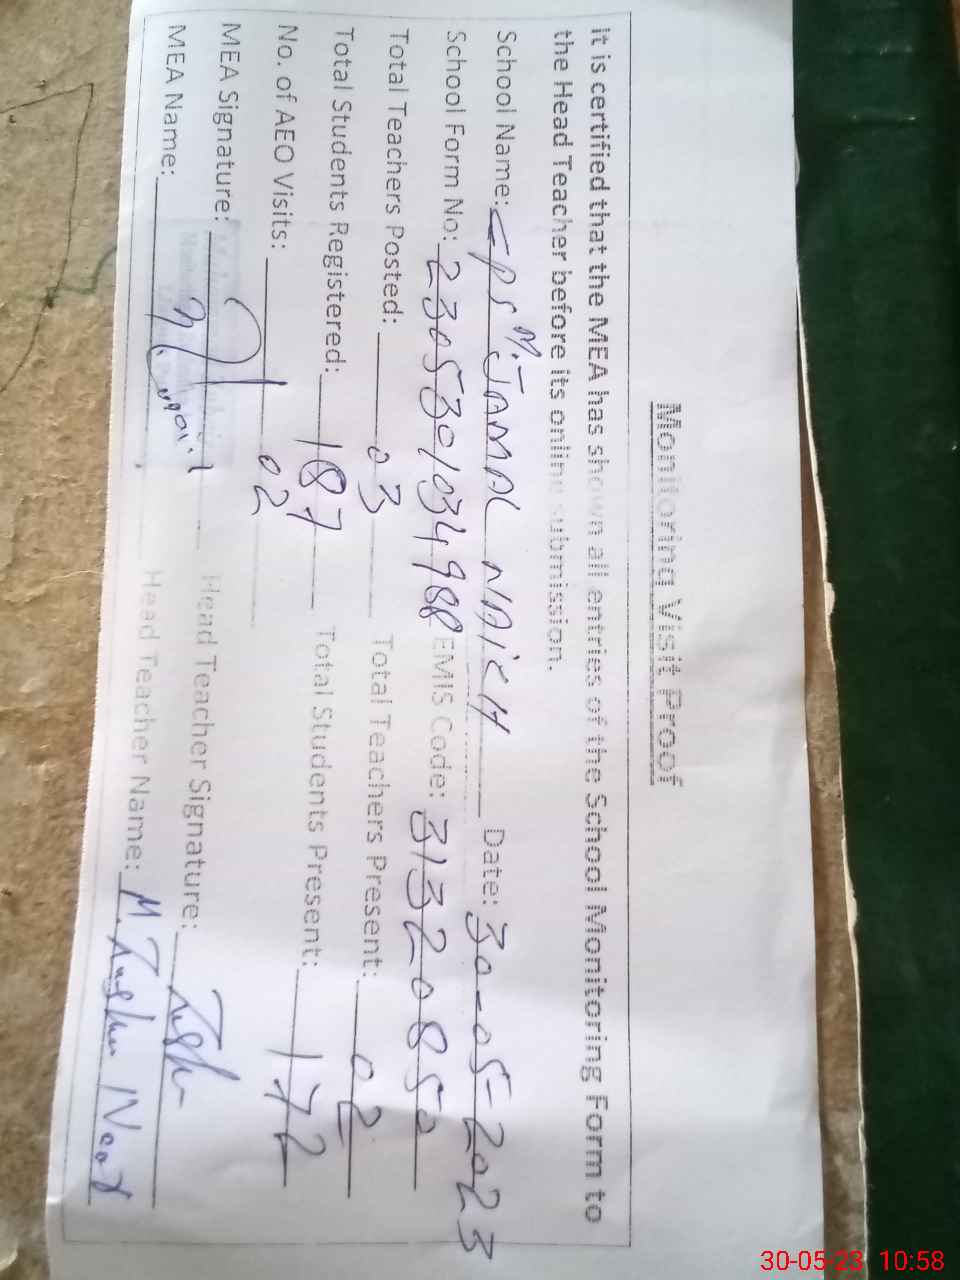 Monitoring Visit Proof
it is certified that the MEA has shown all entries of the School Monitoring Form to
the Head Teacher before its online submission.
School Name: GPS M. JAMAL NAICH Date: 30-05-2023
School Form No: 2305301034988 EMIS Code: 31320850
Total Teachers Posted: 03 Total Teachers Present: 02
Total Students Registered: 187 Total Students Present: 172
No. of AEO Visits: 02
MEA Signature: Head Teacher Signature:
MEA Name: Head Teacher Name: M.
30-05-23 10:58